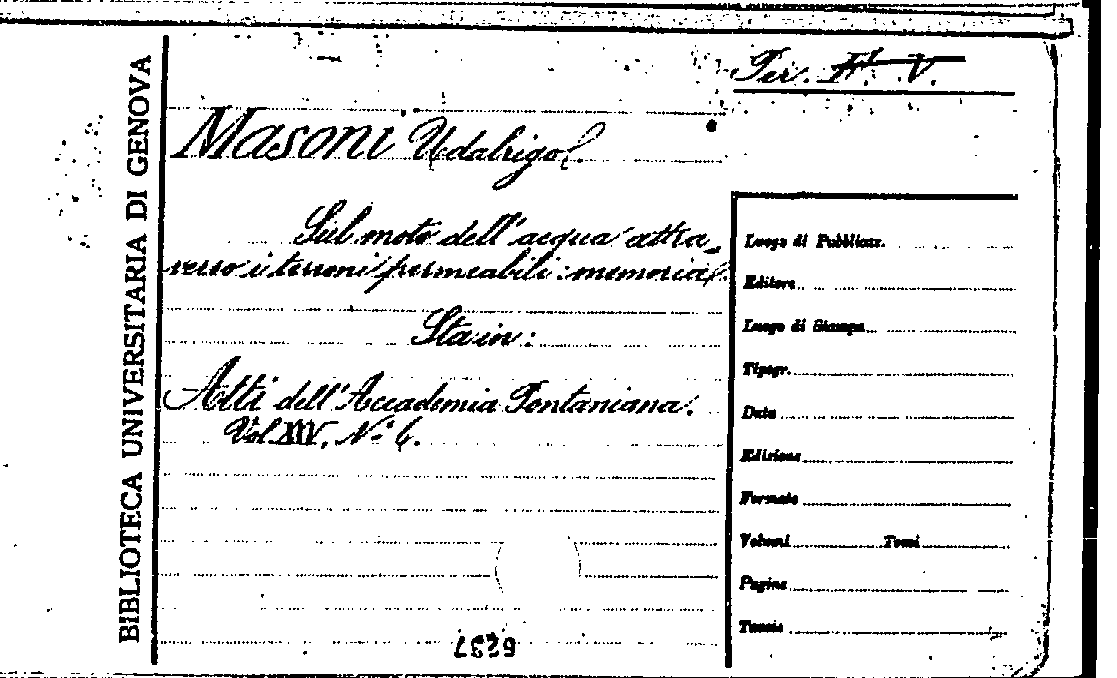 BIBLIOTECA UNIVERSITARIA DI GENOVA
Per. V.
Masoni Udalrigo.
Sul moto dell'acqua attra=
verso i terreni permeabili: memoria.
Sta in:
Atti dell'Accademia Pontaniana.
Vol. XXV, N.° 6.
Luogo di Pubblicaz.
Editore
Luogo di Stampa
Tipogr.
Data
Edizione
Formato
Volumi Tomi
Pagine
Tavole